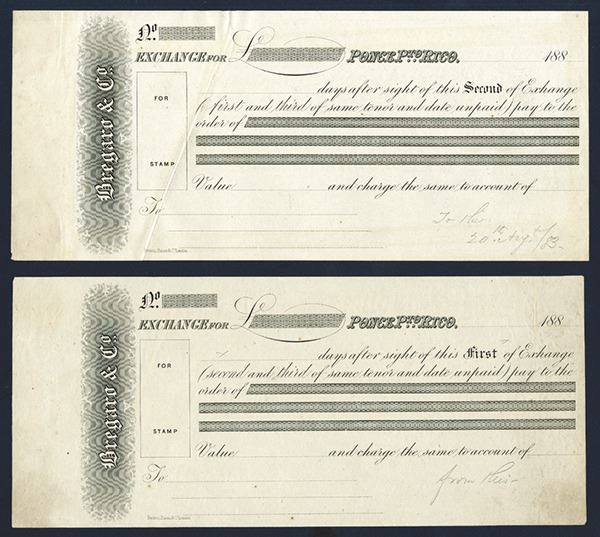 Bregaro & Co.
No.
EXCHANGE FOR £ PONCE, PTO RICO. 188
FOR
STAMP
days after sight of this Second of Exchange
(first and third of same tenor and date unpaid) pay to the
order of
Value and charge the same to account of
To
20th Augt/83-
Bregaro & Co.
No.
EXCHANGE FOR £ PONCE, PTO RICO. 188
FOR
STAMP
days after sight of this First of Exchange
(second and third of same tenor and date unpaid) pay to the
order of
Value and charge the same to account of
To
from this-